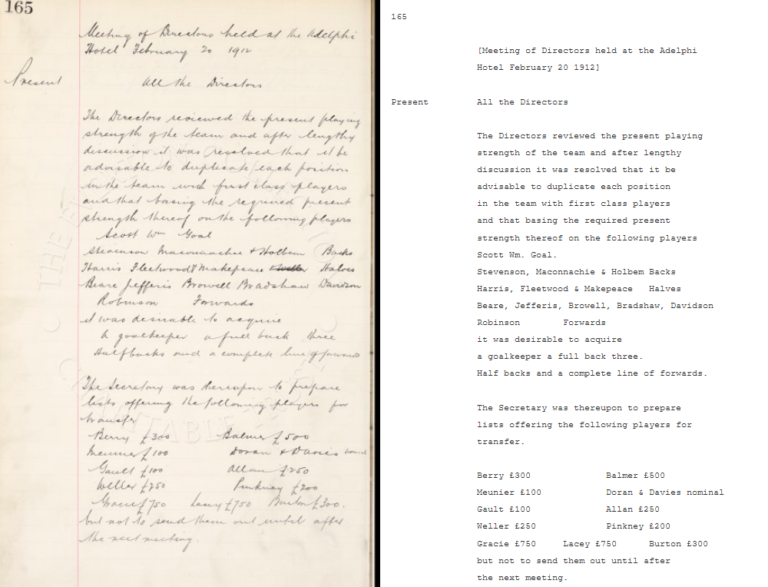 165
Meeting of Directors held at the Adelphi
Hotel February 20 1912
Present All the Directors
The Directors reviewed the present playing
strength of the team and after lengthy
discussion it was resolved that it be
advisable to duplicate each position
in the team with first class players
and that basing the required present
strength thereof on the following players
Scott Wm Goal
Stevenson Maconnachie & Holbem Backs
Harris Fleetwood & Makepeace Halves
Beare Jefferis Browell Bradshaw Davidson
Robinson Forwards
it was desirable to acquire
a goalkeeper a full back three
Halfbacks and a complete line of forwards
The Secretary was thereupon to prepare
lists offering the following players for
transfer
Berry £300 Balmer £500
Meunier £100 Doran & Davies
Gault £100 Allan £250
Weller £250 Pinkney £200
Gracie £750 Lacey £750 Burton £300.
but not to send them out until after
the next meeting.
165
[Meeting of Directors held at the Adelphi
Hotel February 20 1912]
Present All the Directors
The Directors reviewed the present playing
strength of the team and after lengthy
discussion it was resolved that it be
advisable to duplicate each position
in the team with first class players
and that basing the required present
strength thereof on the following players
Scott Wm. Goal.
Stevenson, Maconnachie & Holbem Backs
Harris, Fleetwood & Makepeace Halves
Beare, Jefferis, Browell, Bradshaw, Davidson
Robinson Forwards
it was desirable to acquire
a goalkeeper a full back three.
Half backs and a complete line of forwards.
The Secretary was thereupon to prepare
lists offering the following players for
transfer.
Berry £300 Balmer £500
Meunier £100 Doran & Davies nominal
Gault £100 Allan £250
Weller £250 Pinkney £200
Gracie £750 Lacey £750 Burton £300
but not to send them out until after
the next meeting.